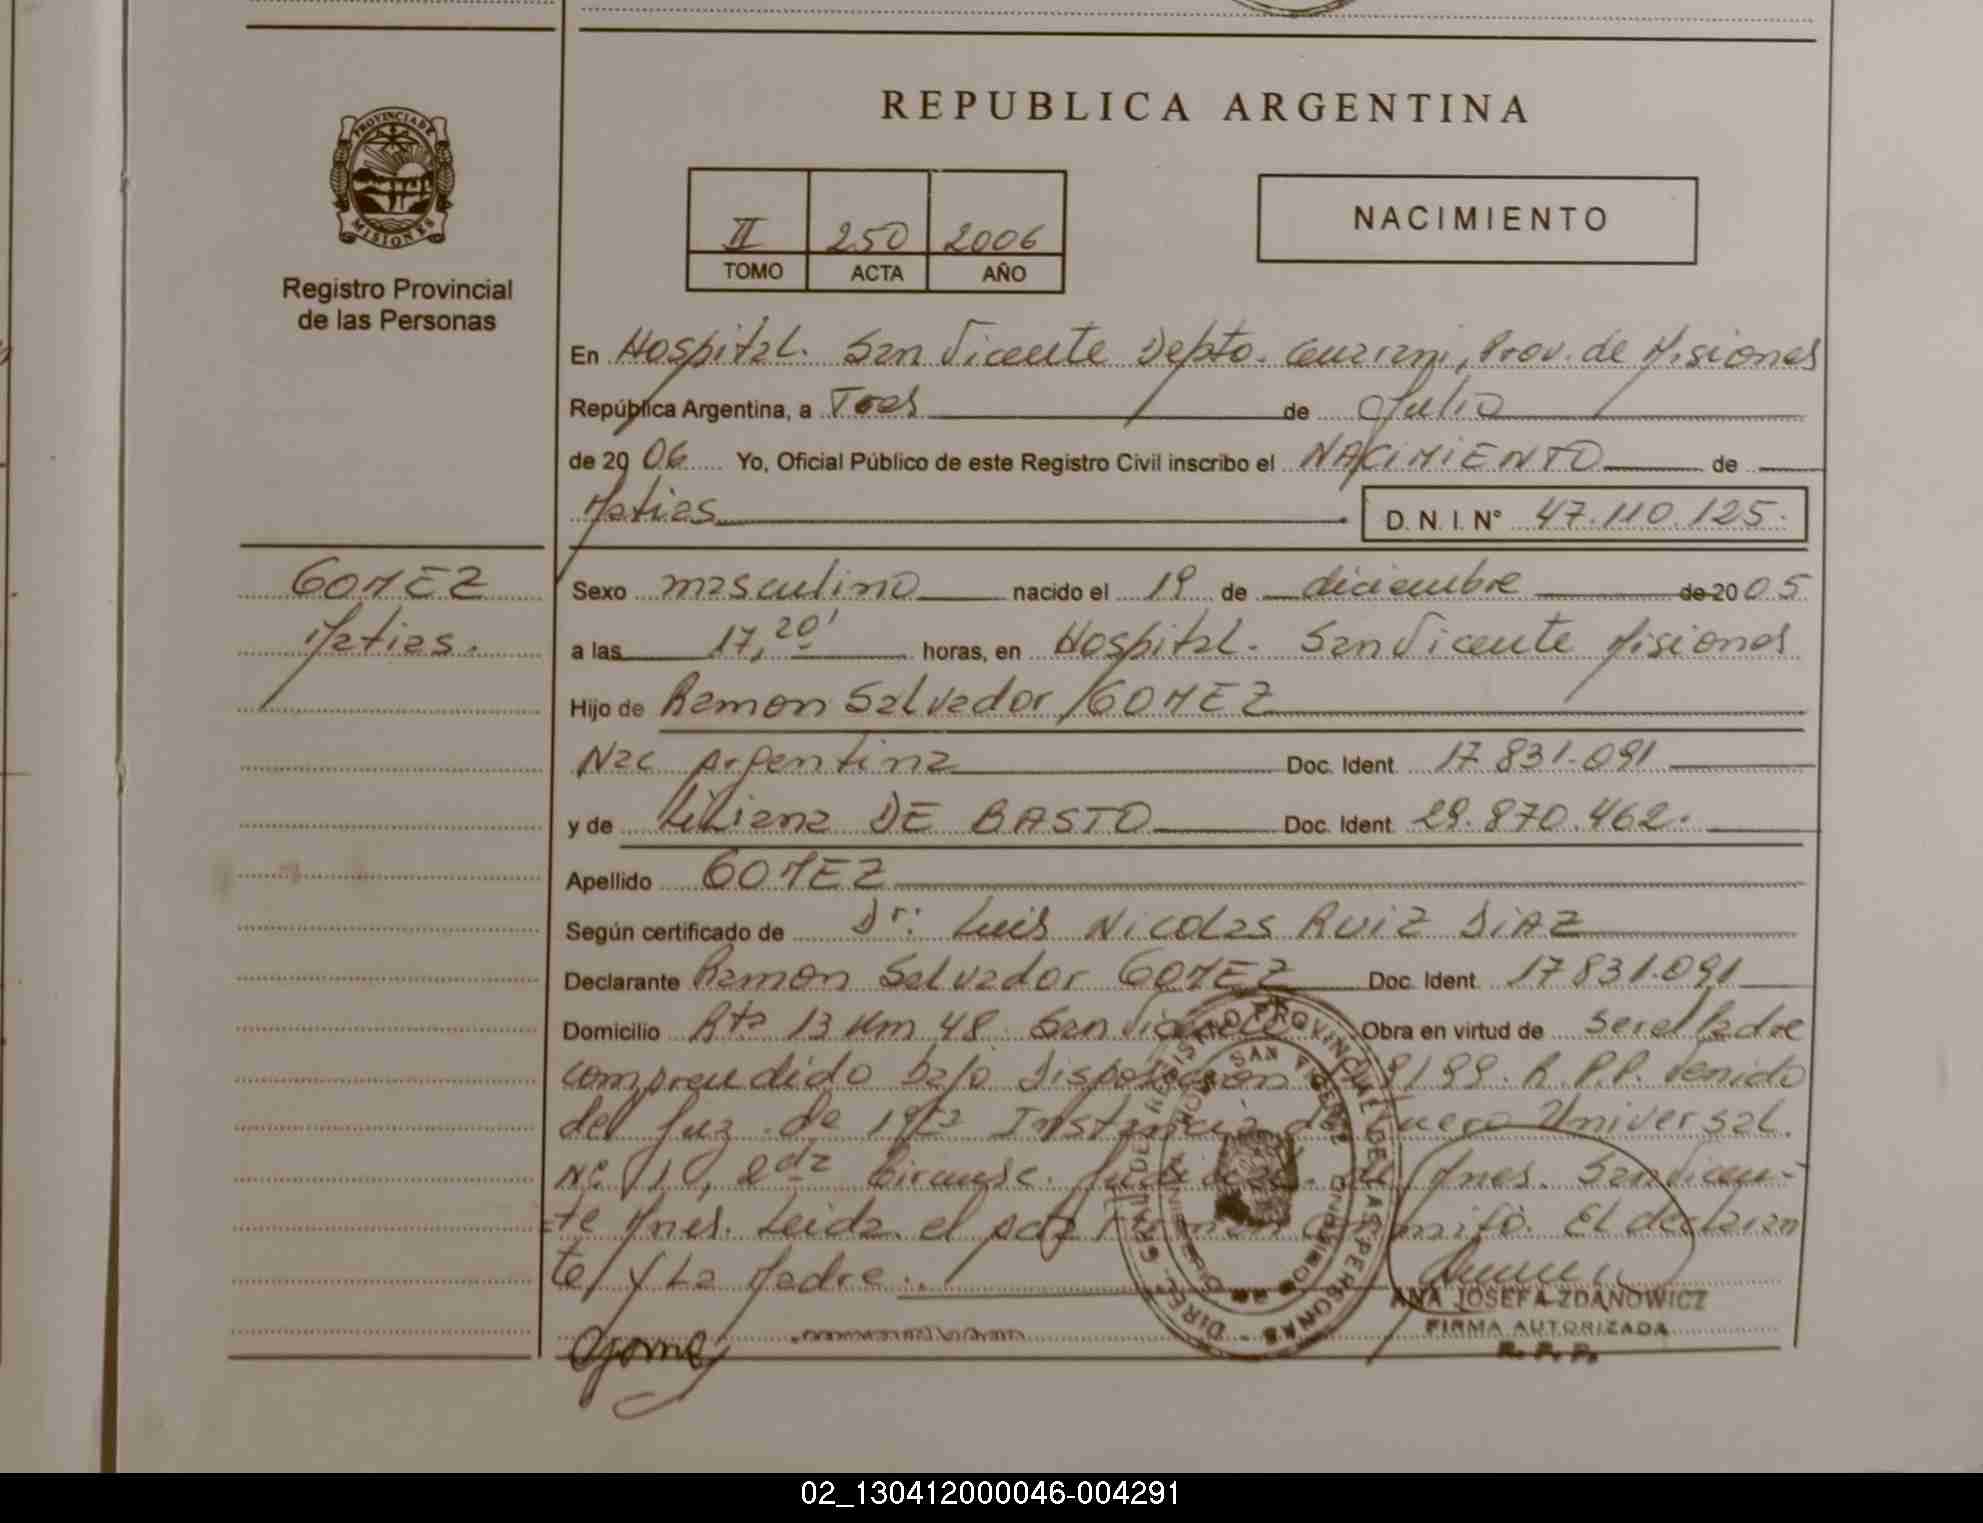 REPUBLICA ARGENTINA
PROVINCIA DE
MISIONES
Registro Provincial
de las Personas
II 250 2006
TOMO ACTA AÑO
NACIMIENTO
En Hospital. San Vicente Depto. Guarani, Prov. de Misiones
República Argentina, a Tres de Julio
de 2006 Yo, Oficial Público de este Registro Civil inscribo el NACIMIENTO de
Matias D. N. I. N° 47.110.125.
GOMEZ
Matias.
Sexo masculino nacido el 19 de diciembre de 2005
a las 17,20' horas, en Hospital. San Vicente Misiones
Hijo de Ramon Salvador GOMEZ
Nac Argentina Doc. Ident. 17.831.091
y de Liliana DE BASTO Doc. Ident. 29.870.462.
Apellido GOMEZ
Según certificado de Dr: Luis Nicolas RUIZ DIAZ
Declarante Ramon Salvador GOMEZ Doc. Ident. 17.831.091
Domicilio Rta 13 Km 48 San Vicente Obra en virtud de ser el Padre
comprendido bajo Disposicion 9/99. R.P.P. venido
del Juz. de 1ra Instancia de Fuero Universal.
N° 1, 2da Circunsc. Judicial. de Mnes. San Vicen-
te Mnes. Leida el acta firman conmigo. El declaran
te y La Madre.
DIREC. GRAL DE REGISTRO PROVINCIAL DE LAS PERSONAS
SAN VICENTE
MISIONES
Gomez
ANA JOSEFA ZDANOWICZ
FIRMA AUTORIZADA
R. P. P.
02_130412000046-004291